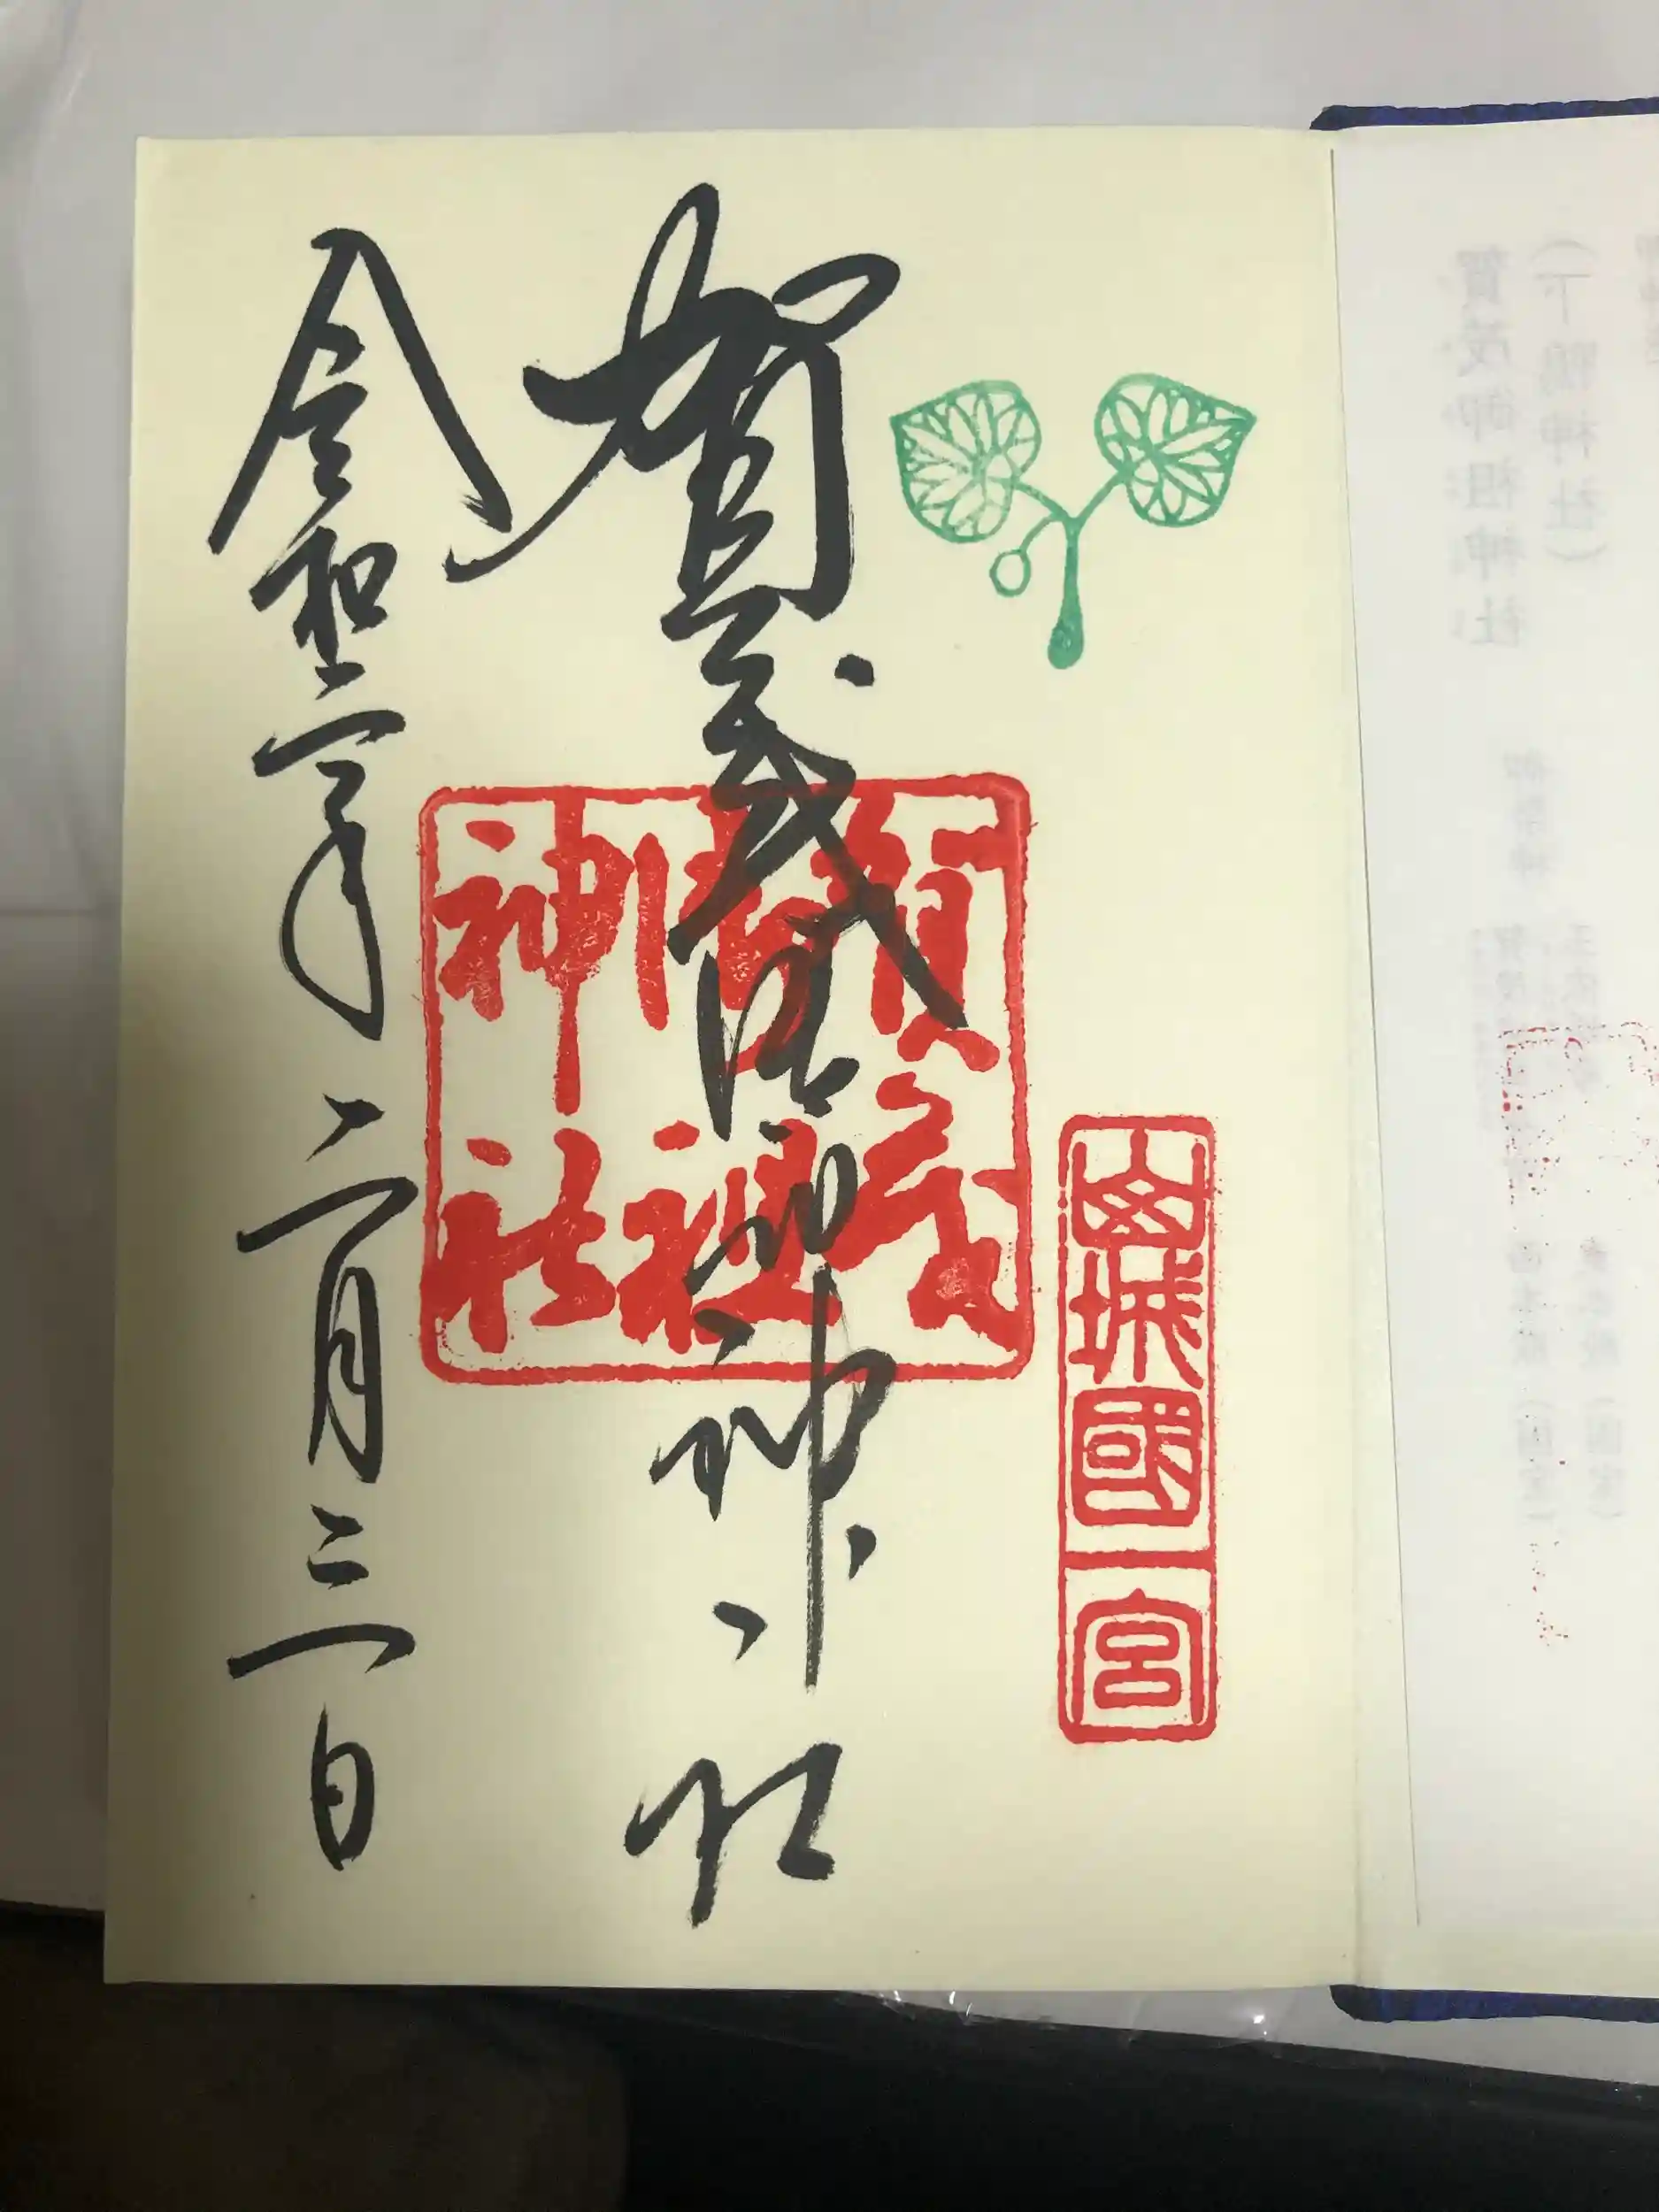 山城國一宮
賀茂御祖神社
賀茂
御祖
神社
令和二年二月三日
賀茂御祖神社
(下鴨神社)